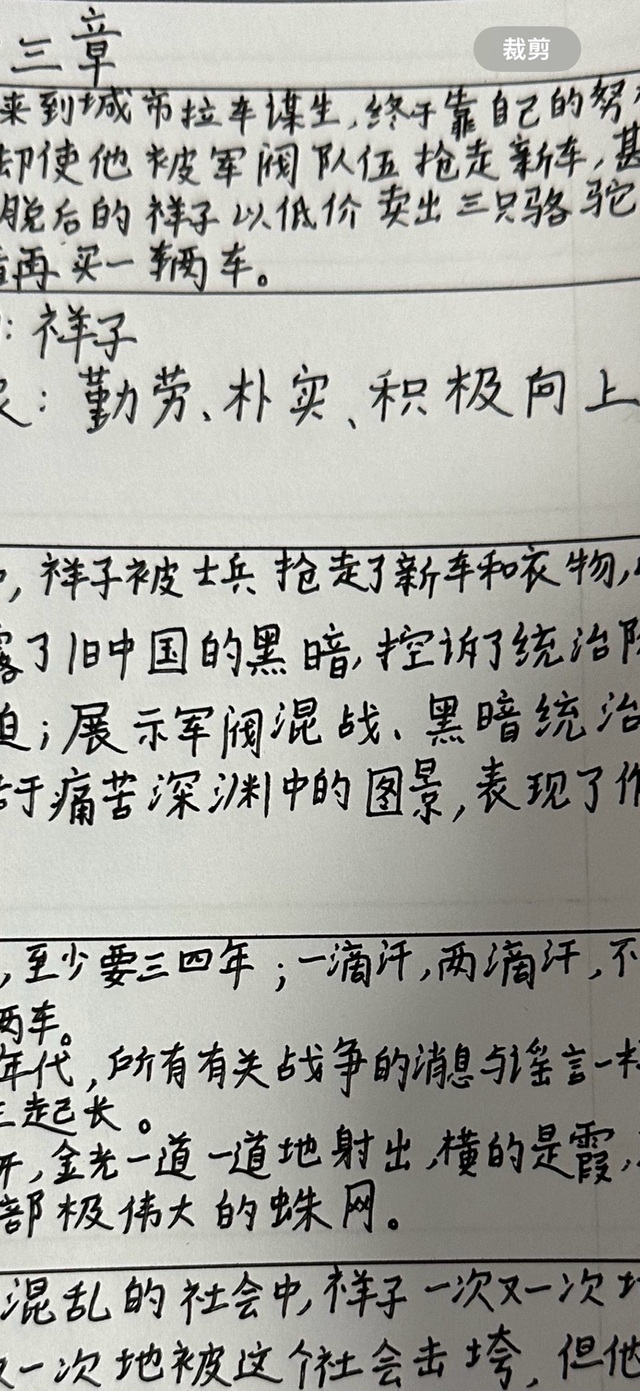 三章
裁剪
来到城市拉车谋生,终于靠自己的努
却使他被军阀队伍抢走新车,甚
脱后的祥子以低价卖出三只骆驼
再买一辆车。
:祥子
:勤劳、朴实、积极向上
,祥子被士兵抢走了新车和衣物,
露了旧中国的黑暗,控诉了统治阶
迫;展示军阀混战、黑暗统治
于痛苦深渊中的图景,表现了作
,至少要三四年;一滴汗,两滴汗,不
两车。
年代,所有有关战争的消息与谣言一样
起长。
开,金光一道一道地射出,横的是霞,
部极伟大的蛛网。
混乱的社会中,祥子一次又一次地
一次地被这个社会击垮,但他